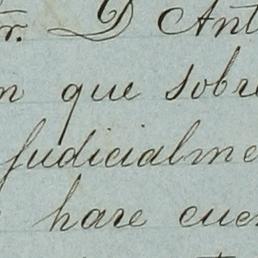 Sr. D Ant
n que sobre
judicialme
hare cuen